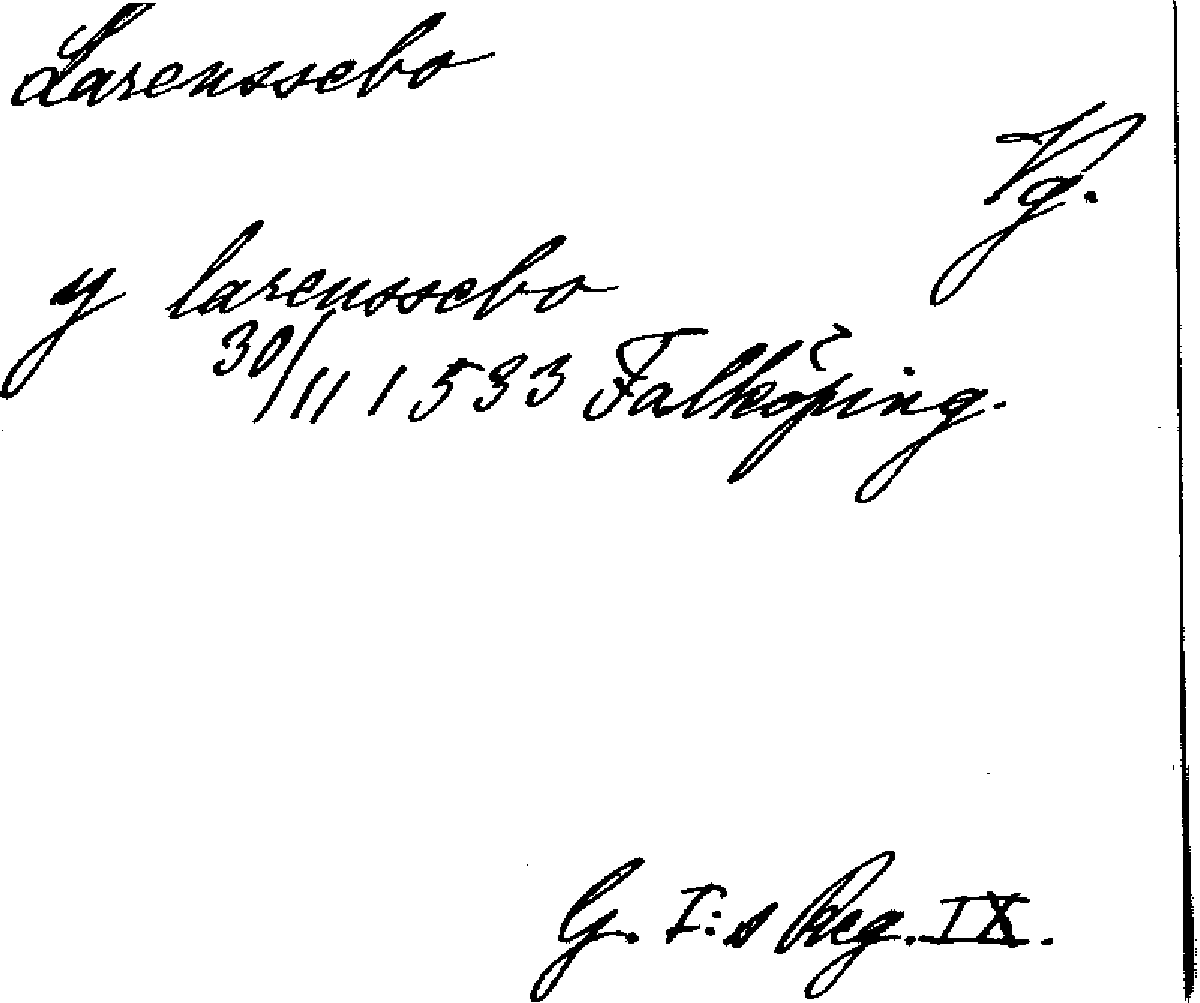 Larenssebo
Vg.
y larenssebo
30/11 1533 Falköping.
G. I:s Reg. IX.